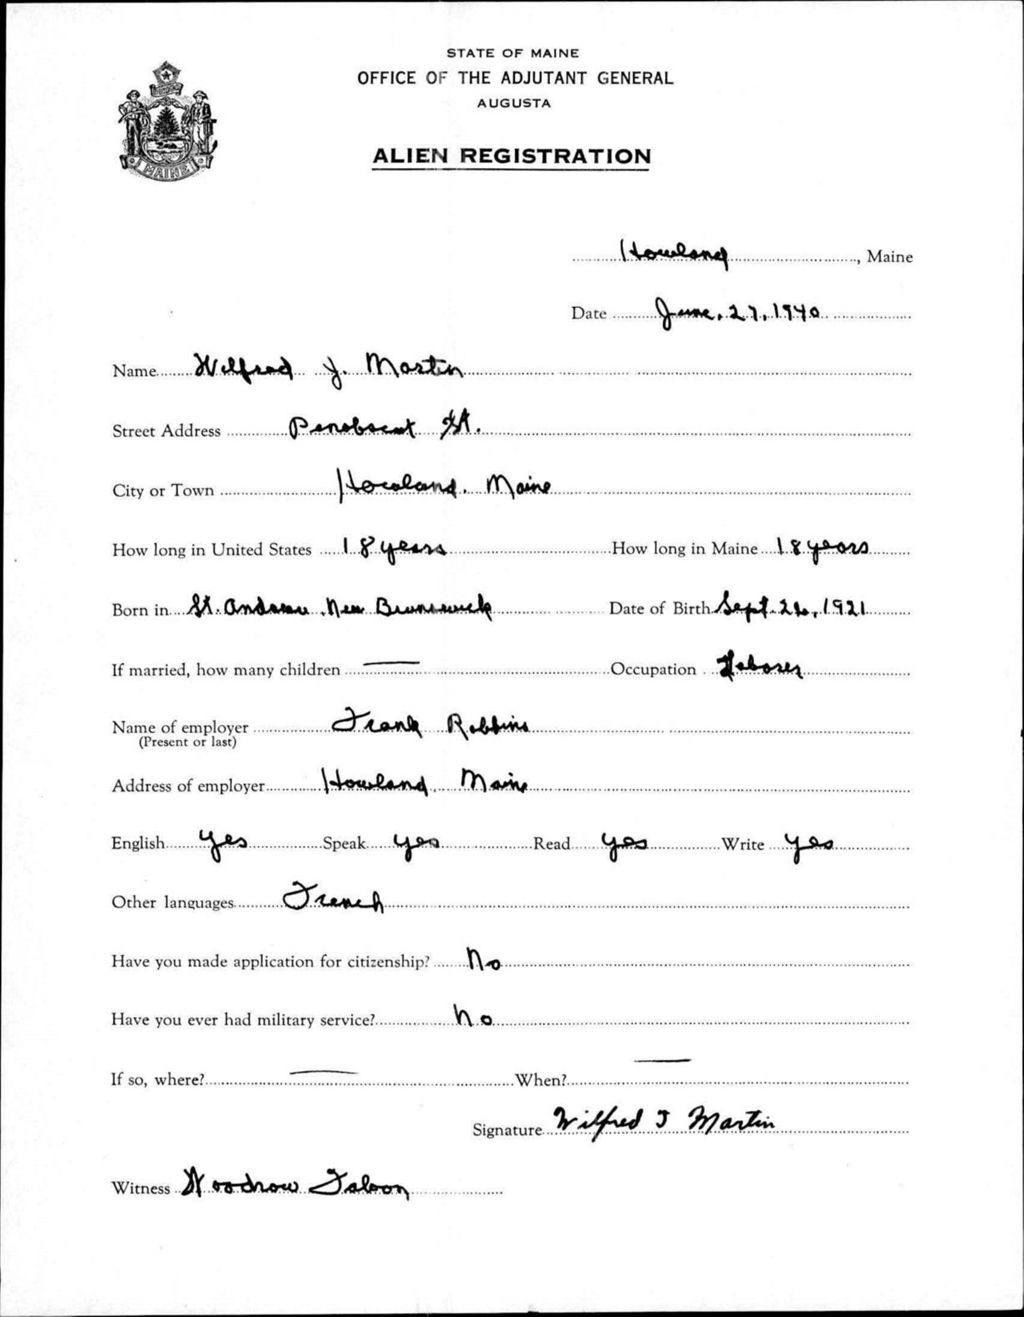 STATE OF MAINE
OFFICE OF THE ADJUTANT GENERAL
AUGUSTA
ALIEN REGISTRATION
MAINE
Howland, Maine
Date June, 27, 1940
Name Wilfred J. Martin
Street Address Penobscot St.
City or Town Howland, Maine
How long in United States 18 years How long in Maine 18 years
Born in St. Andrew New Brunswick Date of Birth Sept. 26, 1921
If married, how many children — Occupation Laborer
Name of employer Frank Robbins
(Present or last)
Address of employer Howland, Maine
English yes Speak yes Read yes Write yes
Other languages French
Have you made application for citizenship? No
Have you ever had military service? No
If so, where? — When? —
Signature Wilfred J Martin
Witness Woodrow